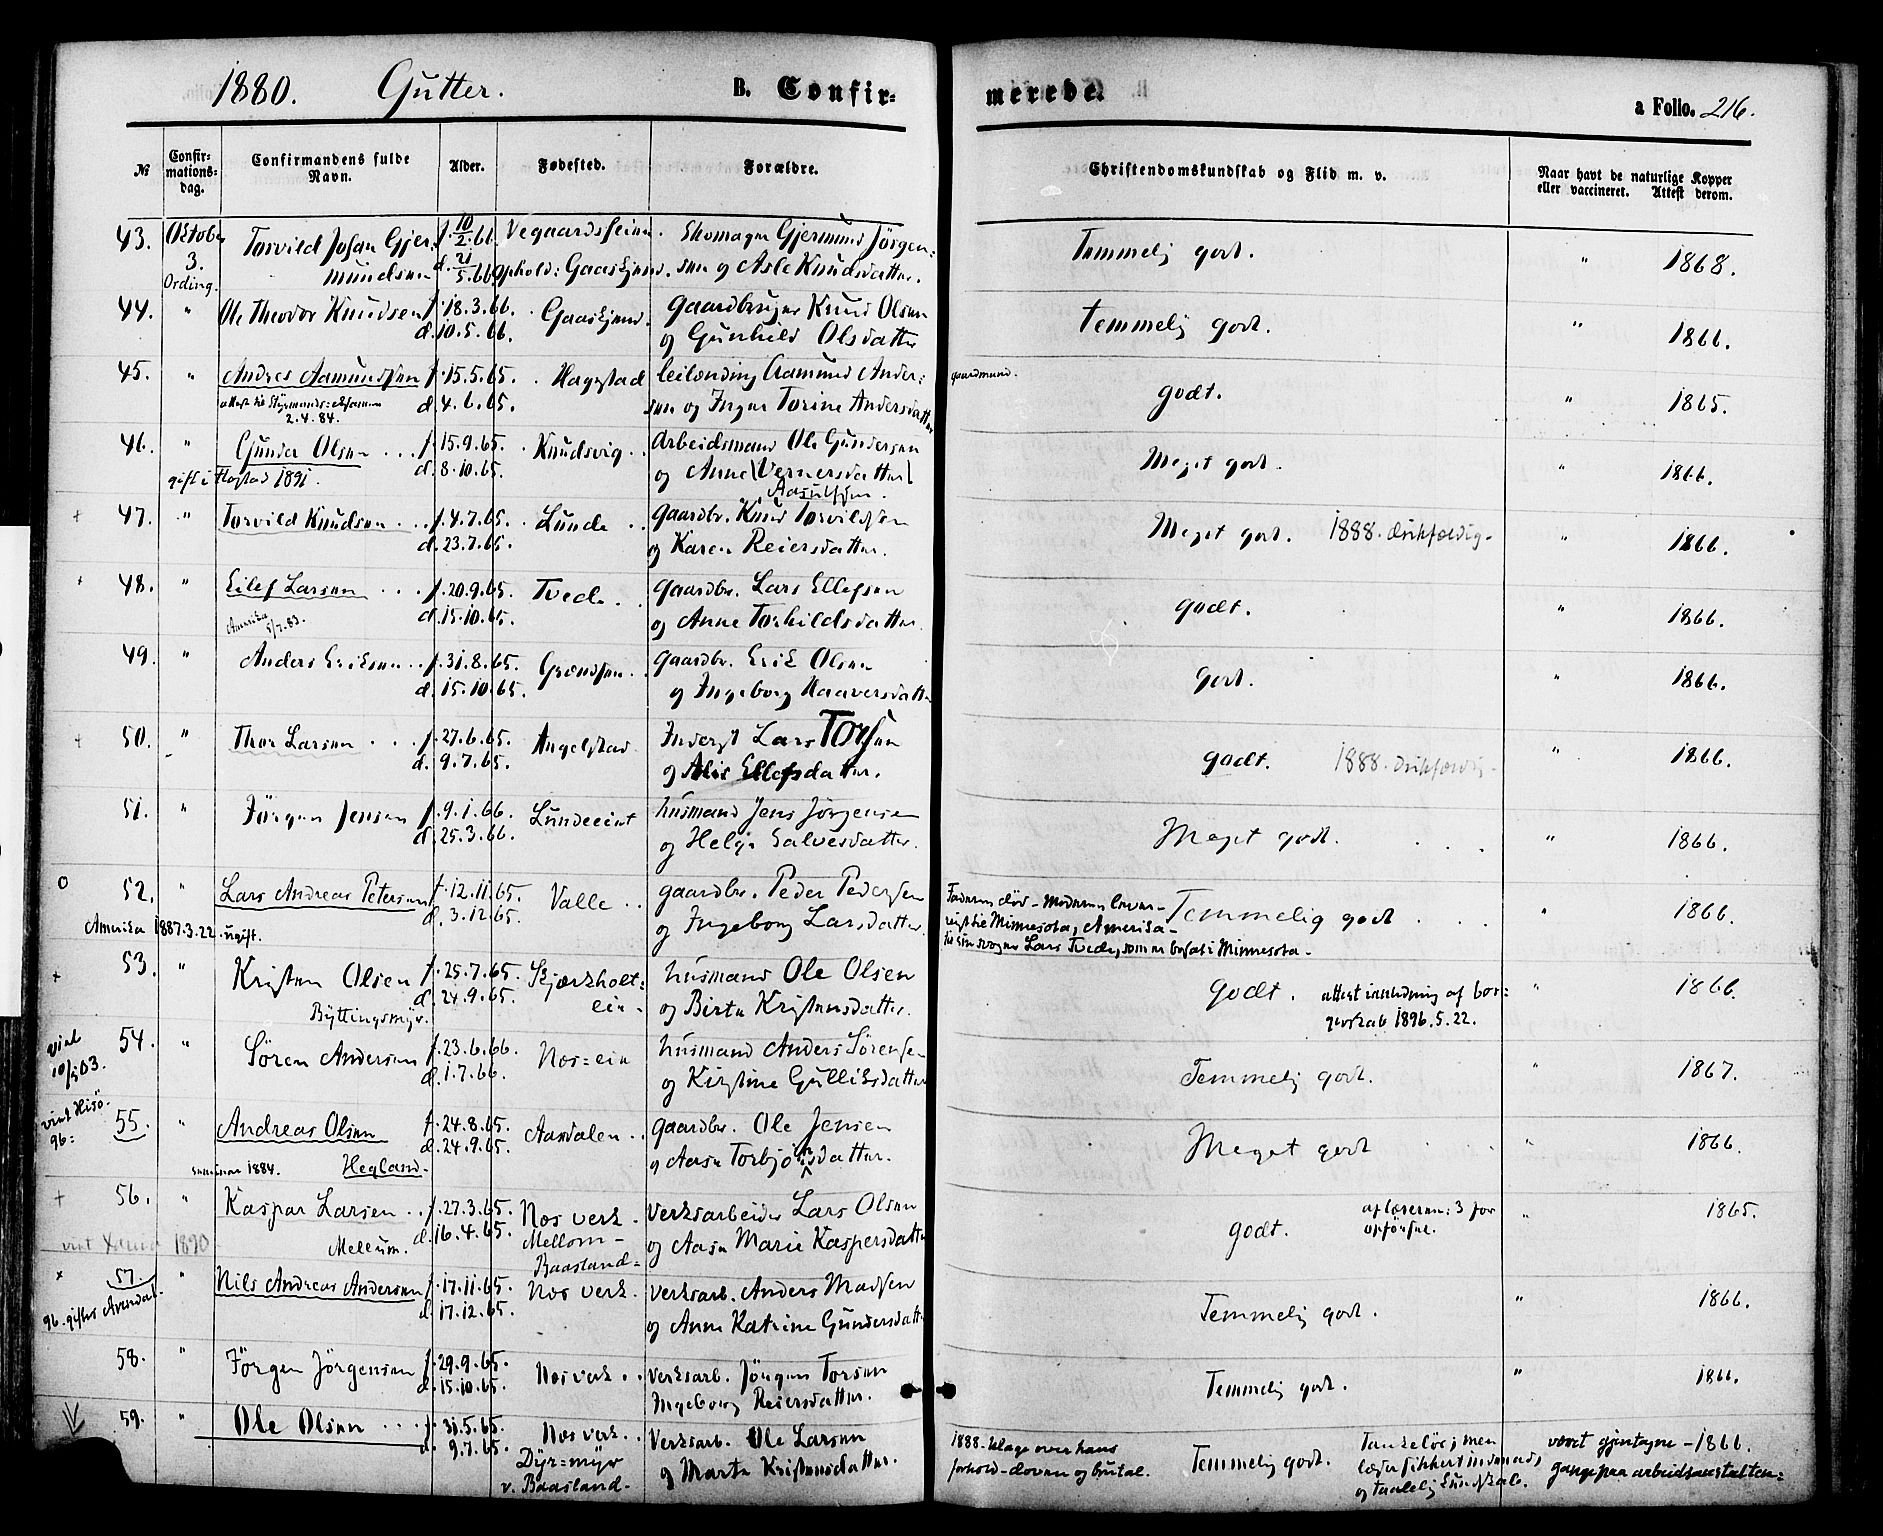 1880. Gutter. B. Confir=
merede.
a Folio. 216.
№ Confir=mations=dag. Confirmandens fulde Navn. Alder. Fødested. Forældre.
Christendomskundskab og Flid m. v. Naar havt de naturlige Kopper eller vaccineret. Attest derom.
43. Oktober Torvild Johan Gjer= f. 10/2.66. Vegaardsheien. Skomager Gjermund Jörgen= Temmelig godt. " 1868.
3. Ording. mundsen d. 21/5.66. Ophold: Gaaskjend. sen og Asle Knudsdatter.
44. " Ole Theodor Knudsen f. 18.3.66. Gaaskjend. Gaardbruger Knud Olsen temmelig godt. " 1866.
d. 10.5.66. og Gunhild Olsdatter
45. " Andres Aamundsen f. 15.5.65. Hagestad leilænding Aamund Ander= gaardmand. godt. " 1865.
d. 4.6.65. sen og Inger Torine Andersdatter
2.4.84.
46. " Gunder Olsen f. 15.9.65. Knudsvig Arbeidsmand Ole Gundersen Meget godt. " 1866.
gift i Flostad 1891. d. 8.10.65. og Anne (Vernersdatter)
47. " Torvild Knudsen f. 4.7.65. Lunde Gaardbr. Knud Torvildsen Meget godt. 1888. drikfældig- " 1866.
d. 23.7.65. og Karen Reiersdatter.
48. " Eilef Larsen f. 20.9.65. Tvede Gaardbr. Lars Ellefsen godt. " 1866.
Amerika 5/7.83. d. 15.10.65. og Anne Torkildsdatter
49. " Anders Eriksen f. 31.8.65. Grændsen Gaardbr. Erik Olsen godt. " 1866.
d. 15.10.65. og Ingeborg Haaversdatter
50. " Thor Larsen f. 27.6.65. Angelstad Inderst Lars Torsen godt. 1888. drikfældig- " 1866.
d. 9.7.65. og Alis Ellefsdatter.
51. " Jörgen Jensen f. 9.1.66. Lundeeiet husmand Jens Jörgensen Meget godt. " 1866.
d. 25.3.66. og Helge Salvesdatter.
52. " Lars Andreas Petersen f. 12.11.65. Valle gaardbr. Peder Pedersen Faderen död - Moderen lever- Temmelig godt " 1866.
Amerika 1887.3.22. ugift. d. 3.12.65. og Ingeborg Larsdatter reist til Minnesota, Amerika-
til sin svoger Lars Tvede, som er bosat i Minnesota-
53. " Kristen Olsen f. 25.7.65. Skjærkholt= husmand Ole Olsen godt. attest i anledning af bor= " 1866.
Byttingsmyr. d. 24.9.65. eie- og Birte Kristensdatter. gerskab 1896.5.22.
54. " Sören Andersen f. 23.6.66. Næs=eie husmand Anders Sörensen Temmelig godt. " 1867.
d. 1.7.66. og Kirstine Gulliksdatter
viet Hisö- 96:
55. " Andreas Olsen f. 24.8.65. Aasdalen gaardbr. Ole Jensen Meget godt " 1866.
1884. Hegland- d. 24.9.65. og Aase Torbjörnsdatter.
56. " Kaspar Larsen f. 27.3.65. Næs verk. Verksarbeider Lars Olsen godt. " 1865.
1890 Mellem. d. 16.4.65. Mellom- Baasland= og Aase Marie Kaspersdatter
57. " Nils Andreas Andersen f. 17.11.65. Næs verk. verksarb. Anders Madsen Temmelig godt. " 1866.
96. giftes Arendal. d. 17.12.65. og Anne Katrine Gundersdatter
58. " Jörgen Jörgensen f. 29.9.65. Næs verk Verksarb. Jörgen Torsen Temmelig godt. " 1866.
d. 15.10.65. Ingeborg Reiersdatter.
59. " Ole Olsen f. 31.5.65. Næs verk. Verksarb. Ole Larsen 1888- klage over hans Temmelig godt. Tankelös; men været gjentagne - 1866.
d. 9.7.65. Dyr=myr og Marte Kristensdatter. forhold - doven og brutal. læser sikkert indenad, gange paa arbeidsanstalten=
v. Baasland- og taalelig kundskab.